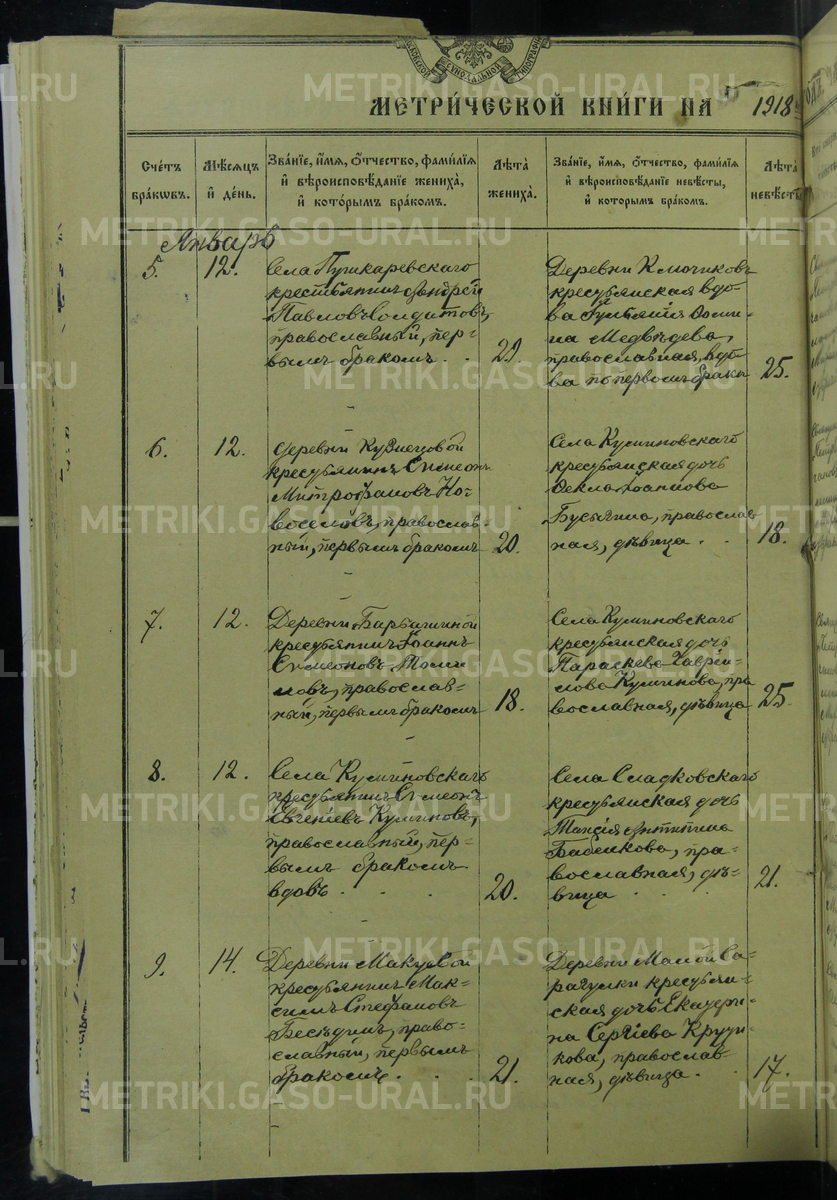 МЕТРИ́ЧЕСКОЙ КНИ́ГИ НА 1918
Сче́тъ бра́кѡвъ.
Мѣ́сѧцъ и҆ де́нь.
Зва́нїе, и҆́мѧ, ѻ҆́тчество, фамѝлїѧ и҆ вѣроисповѣ́данїе жениха̀, и҆ кото́рымъ бра́комъ.
Лѣ́та жениха̀.
Зва́нїе, и҆́мѧ, ѻ҆́тчество, фамѝлїѧ и҆ вѣроисповѣ́данїе невѣ́сты, и҆ которымъ бра́комъ.
Лѣ́та невѣ́сты
Январь
5.
12.
Села Пушкаревскаго
крестьянинъ Андрей
Павловъ Солдатовъ,
православный, пер-
вымъ бракомъ . .
29.
Деревни Ключиковъ
крестьянская вдо-
ва Іуліанія
Медвѣдева,
православная, вдо-
ва по первомъ бракѣ
25.
6.
12.
Деревни Кузнецовой
крестьянинъ Симеонъ
Митрофановъ Но-
воселовъ, православ-
ный, первымъ бракомъ
20.
Села Куминовскаго
крестьянская дочь
Ѳекла Іоаннова
Бусыгина, православ
ная, дѣвица . .
18.
7.
12.
Деревни Барбашиной
крестьянинъ Іоаннъ
Симеоновъ Томи
ловъ, православ-
ный, первымъ бракомъ
18.
Села Куминовскаго
крестьянская дочь
Параскева Гаврiи-
лова Куминова, пра
вославная, дѣвица
25.
8.
12.
Села Куминовскаго
крестьянинъ Симеонъ
Евгеніевъ Куминовъ,
православный, пер-
вымъ бракомъ
вдовъ . . .
20.
Села Сладковскаго
крестьянская дочь
Таисія Антипина
Бабенкова, пра-
вославная, дѣ-
вица . . .
21.
9.
14.
Деревни Макуевой
крестьянинъ Мак-
симъ Стефановъ
Бесѣдинъ, право-
славный, первымъ
бракомъ . . .
21.
Деревни Малой Са-
рагулки крестьян-
ская дочь Екатери-
на Сергіева Крути-
кова, православ-
ная, дѣвица . .
17.
METRIKI.GASO-URAL.RU